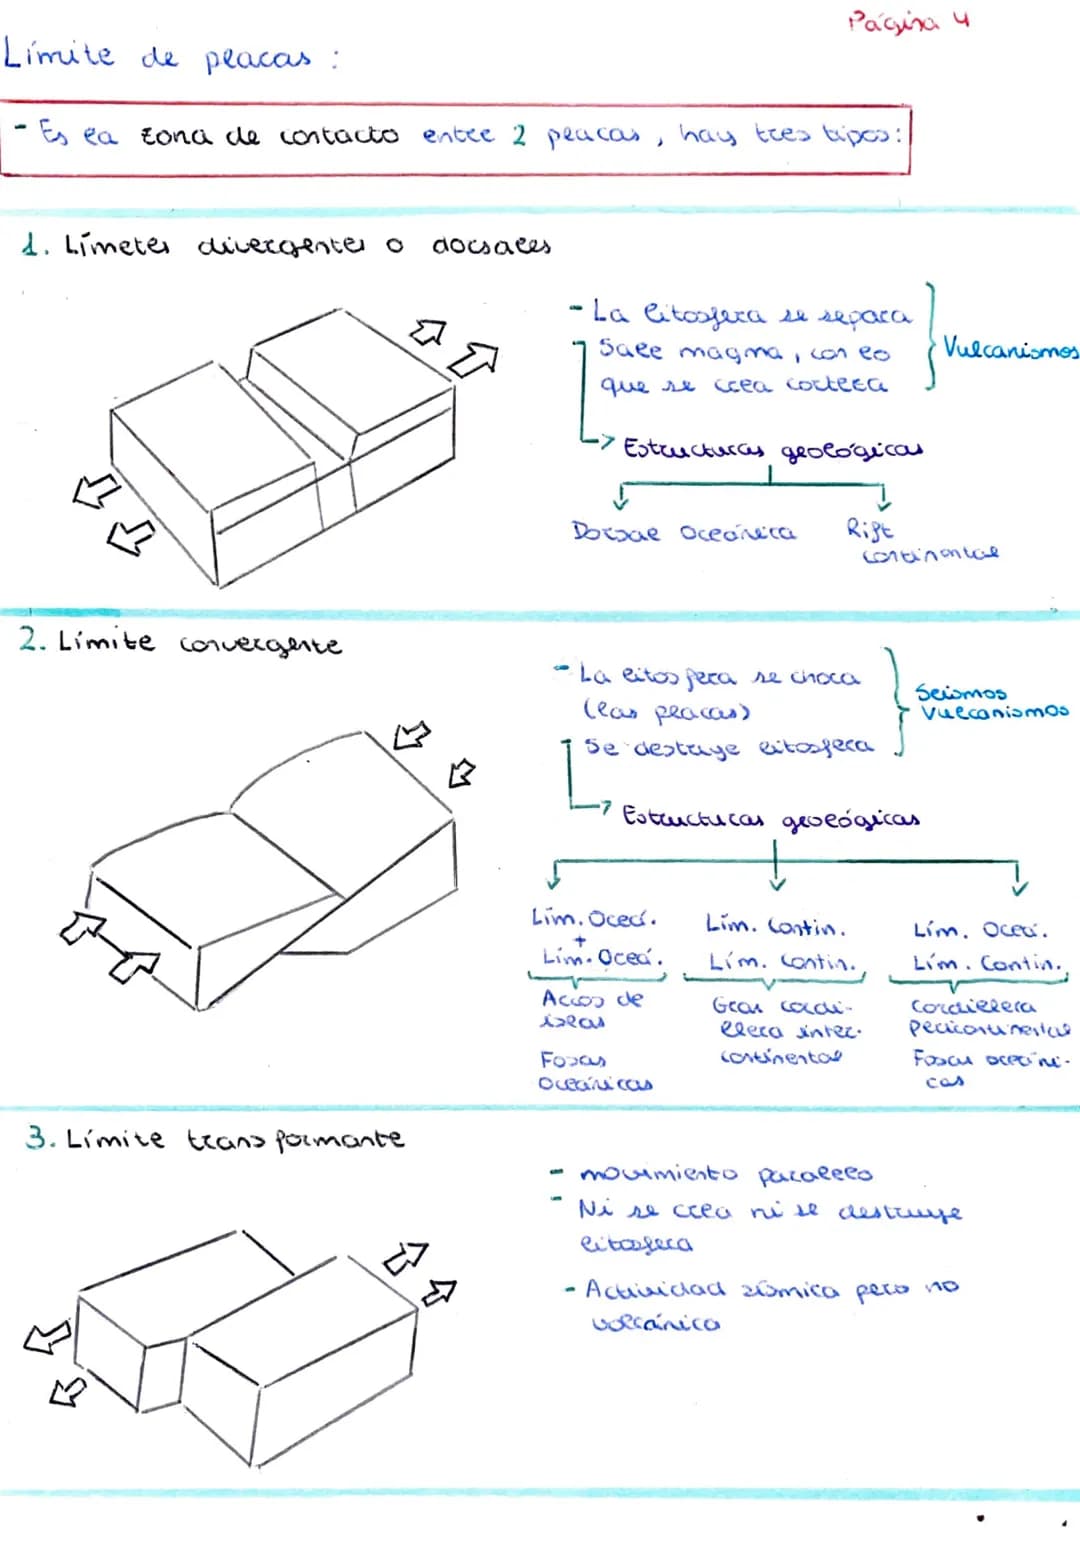 Página 4
Límite de placas :
- Es la zona de contacto entre 2 placas, hay tres tipos:
1. Límetes divergentes o dorsales
- La litosfera se separa
Sale magma, con lo
que se crea corteza
Vulcanismos
Estructuras geológicas
Dorsal Oceánica
Rift
continental
2. Límite convergente
- La litosfera se choca
(las placas)
Se destruye litosfera
Seísmos
Vulcanismos
Estructuras geológicas
Lím. Oceá.
+
Lím. Oceá.
Arcos de
islas
Fosas
Oceánicas
Lím. Contin.
Lím. Contin.
Gran cordi-
llera inter-
continental
Lím. Oceá.
Lím. Contin.
Cordillera
pericontinental
Fosas oceáni-
cas
3. Límite transformante
- movimiento paralelo
- Ni se crea ni se destruye
litosfera
- Actividad sísmica pero no
volcánica